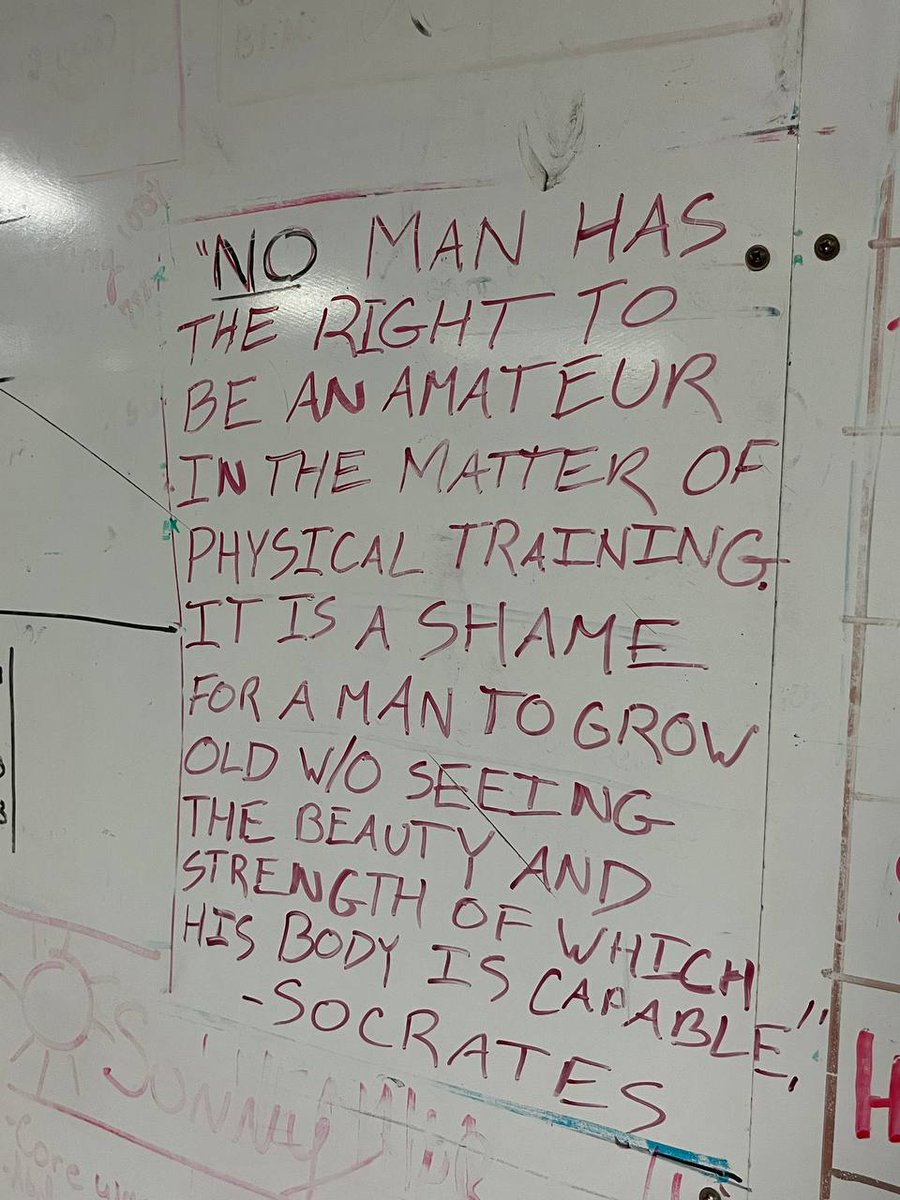 "NO MAN HAS
THE RIGHT TO
BE AN AMATEUR
IN THE MATTER OF
PHYSICAL TRAINING.
IT IS A SHAME
FOR A MAN TO GROW
OLD W/O SEEING
THE BEAUTY AND
STRENGTH OF WHICH
HIS BODY IS CAPABLE."
-SOCRATES